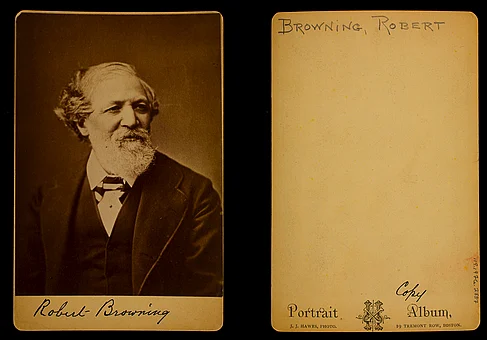 Robert Browning
BROWNING, ROBERT
Copy
Portrait Album,
J. J. HAWES, PHOTO. 19 TREMONT ROW, BOSTON.